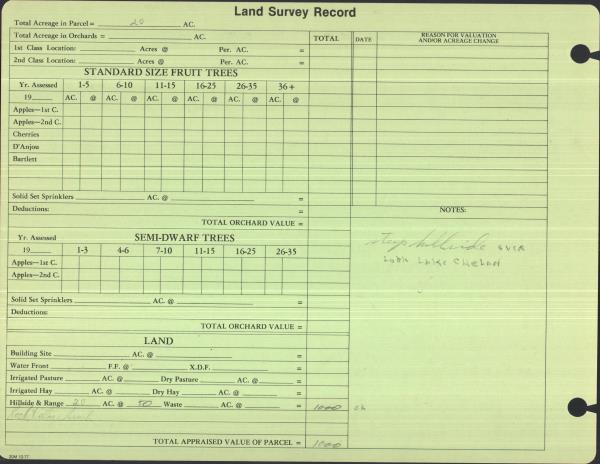 Land Survey Record
Total Acreage in Parcel = 20 AC.
Total Acreage in Orchards = AC. TOTAL DATE REASON FOR VALUATION AND/OR ACREAGE CHANGE
1st Class Location: Acres @ Per. AC. =
2nd Class Location: Acres @ Per. AC. =
STANDARD SIZE FRUIT TREES
Yr. Assessed 1-5 6-10 11-15 16-25 26-35 36+
19 AC. @ AC. @ AC. @ AC. @ AC. @ AC. @
Apples—1st C.
Apples—2nd C.
Cherries
D'Anjou
Bartlett
Solid Set Sprinklers AC. @ =
Deductions: =
TOTAL ORCHARD VALUE =
NOTES:
Steep hillside over
Lake Chelan
Yr. Assessed SEMI-DWARF TREES
19 1-3 4-6 7-10 11-15 16-25 26-35
Apples—1st C.
Apples—2nd C.
Solid Set Sprinklers AC. @ =
Deductions: =
TOTAL ORCHARD VALUE =
LAND
Building Site AC. @ =
Water Front F.F. @ X.D.F. =
Irrigated Pasture AC. @ Dry Pasture AC. @ =
Irrigated Hay AC. @ Dry Hay AC. @ =
Hillside & Range 20 AC. @ 50 Waste AC. @ = 1000
TOTAL APPRAISED VALUE OF PARCEL = 1000
20M 12-77